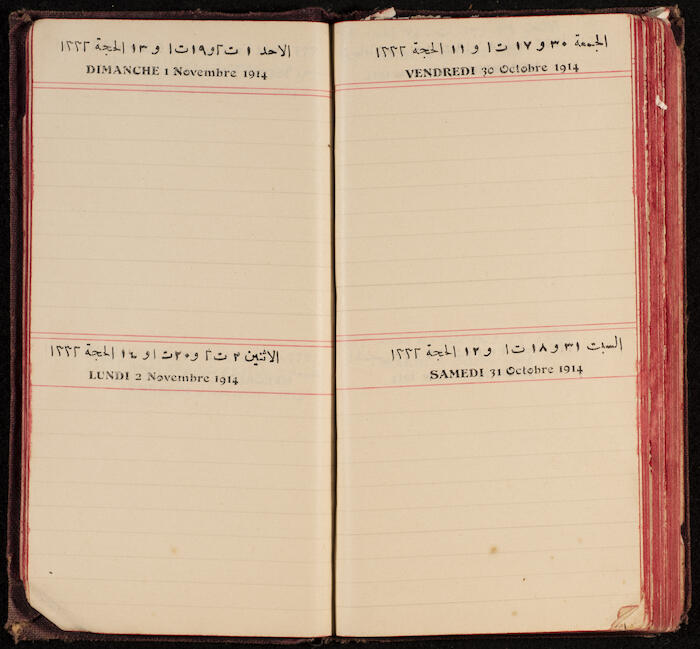 الجمعة ٣٠ و ١٧ ت١ و ١١ الحجة ١٣٣٢
VENDREDI 30 Octobre 1914
السبت ٣١ و ١٨ ت١ و ١٢ الحجة ١٣٣٢
SAMEDI 31 Octobre 1914
الاحد ١ ت٢ و ١٩ ت١ و ١٣ الحجة ١٣٣٢
DIMANCHE 1 Novembre 1914
الاثنين ٢ ت٢ و ٢٠ ت١ و ١٤ الحجة ١٣٣٢
LUNDI 2 Novembre 1914